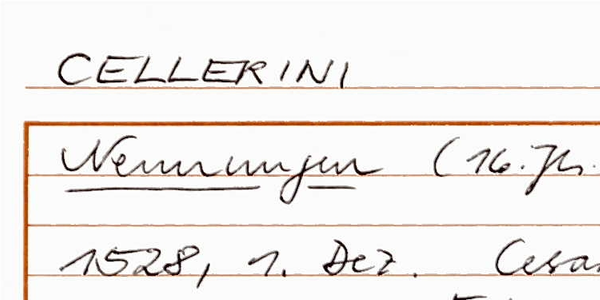 CELLERINI
Nennungen (16. Jh.
1528, 1. Dez. Cesa